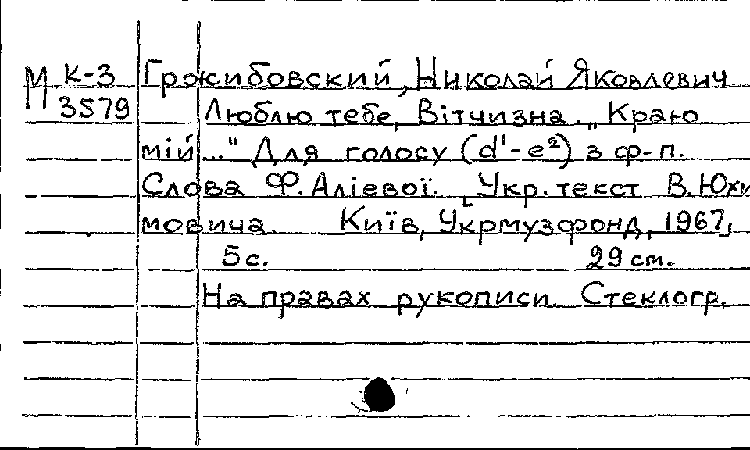 М К-3 Гржибовский, Николай Яковлевич
3579 Люблю тебе, Вітчизна. „Краю
мій..." Для голосу (d¹-e²) з ф-п.
Слова Ф. Алієвої. Укр. текст В. Юхи
мовича. Київ, Укрмузфонд, 1967,
5 с. 29 см.
На правах рукописи Стеклогр.